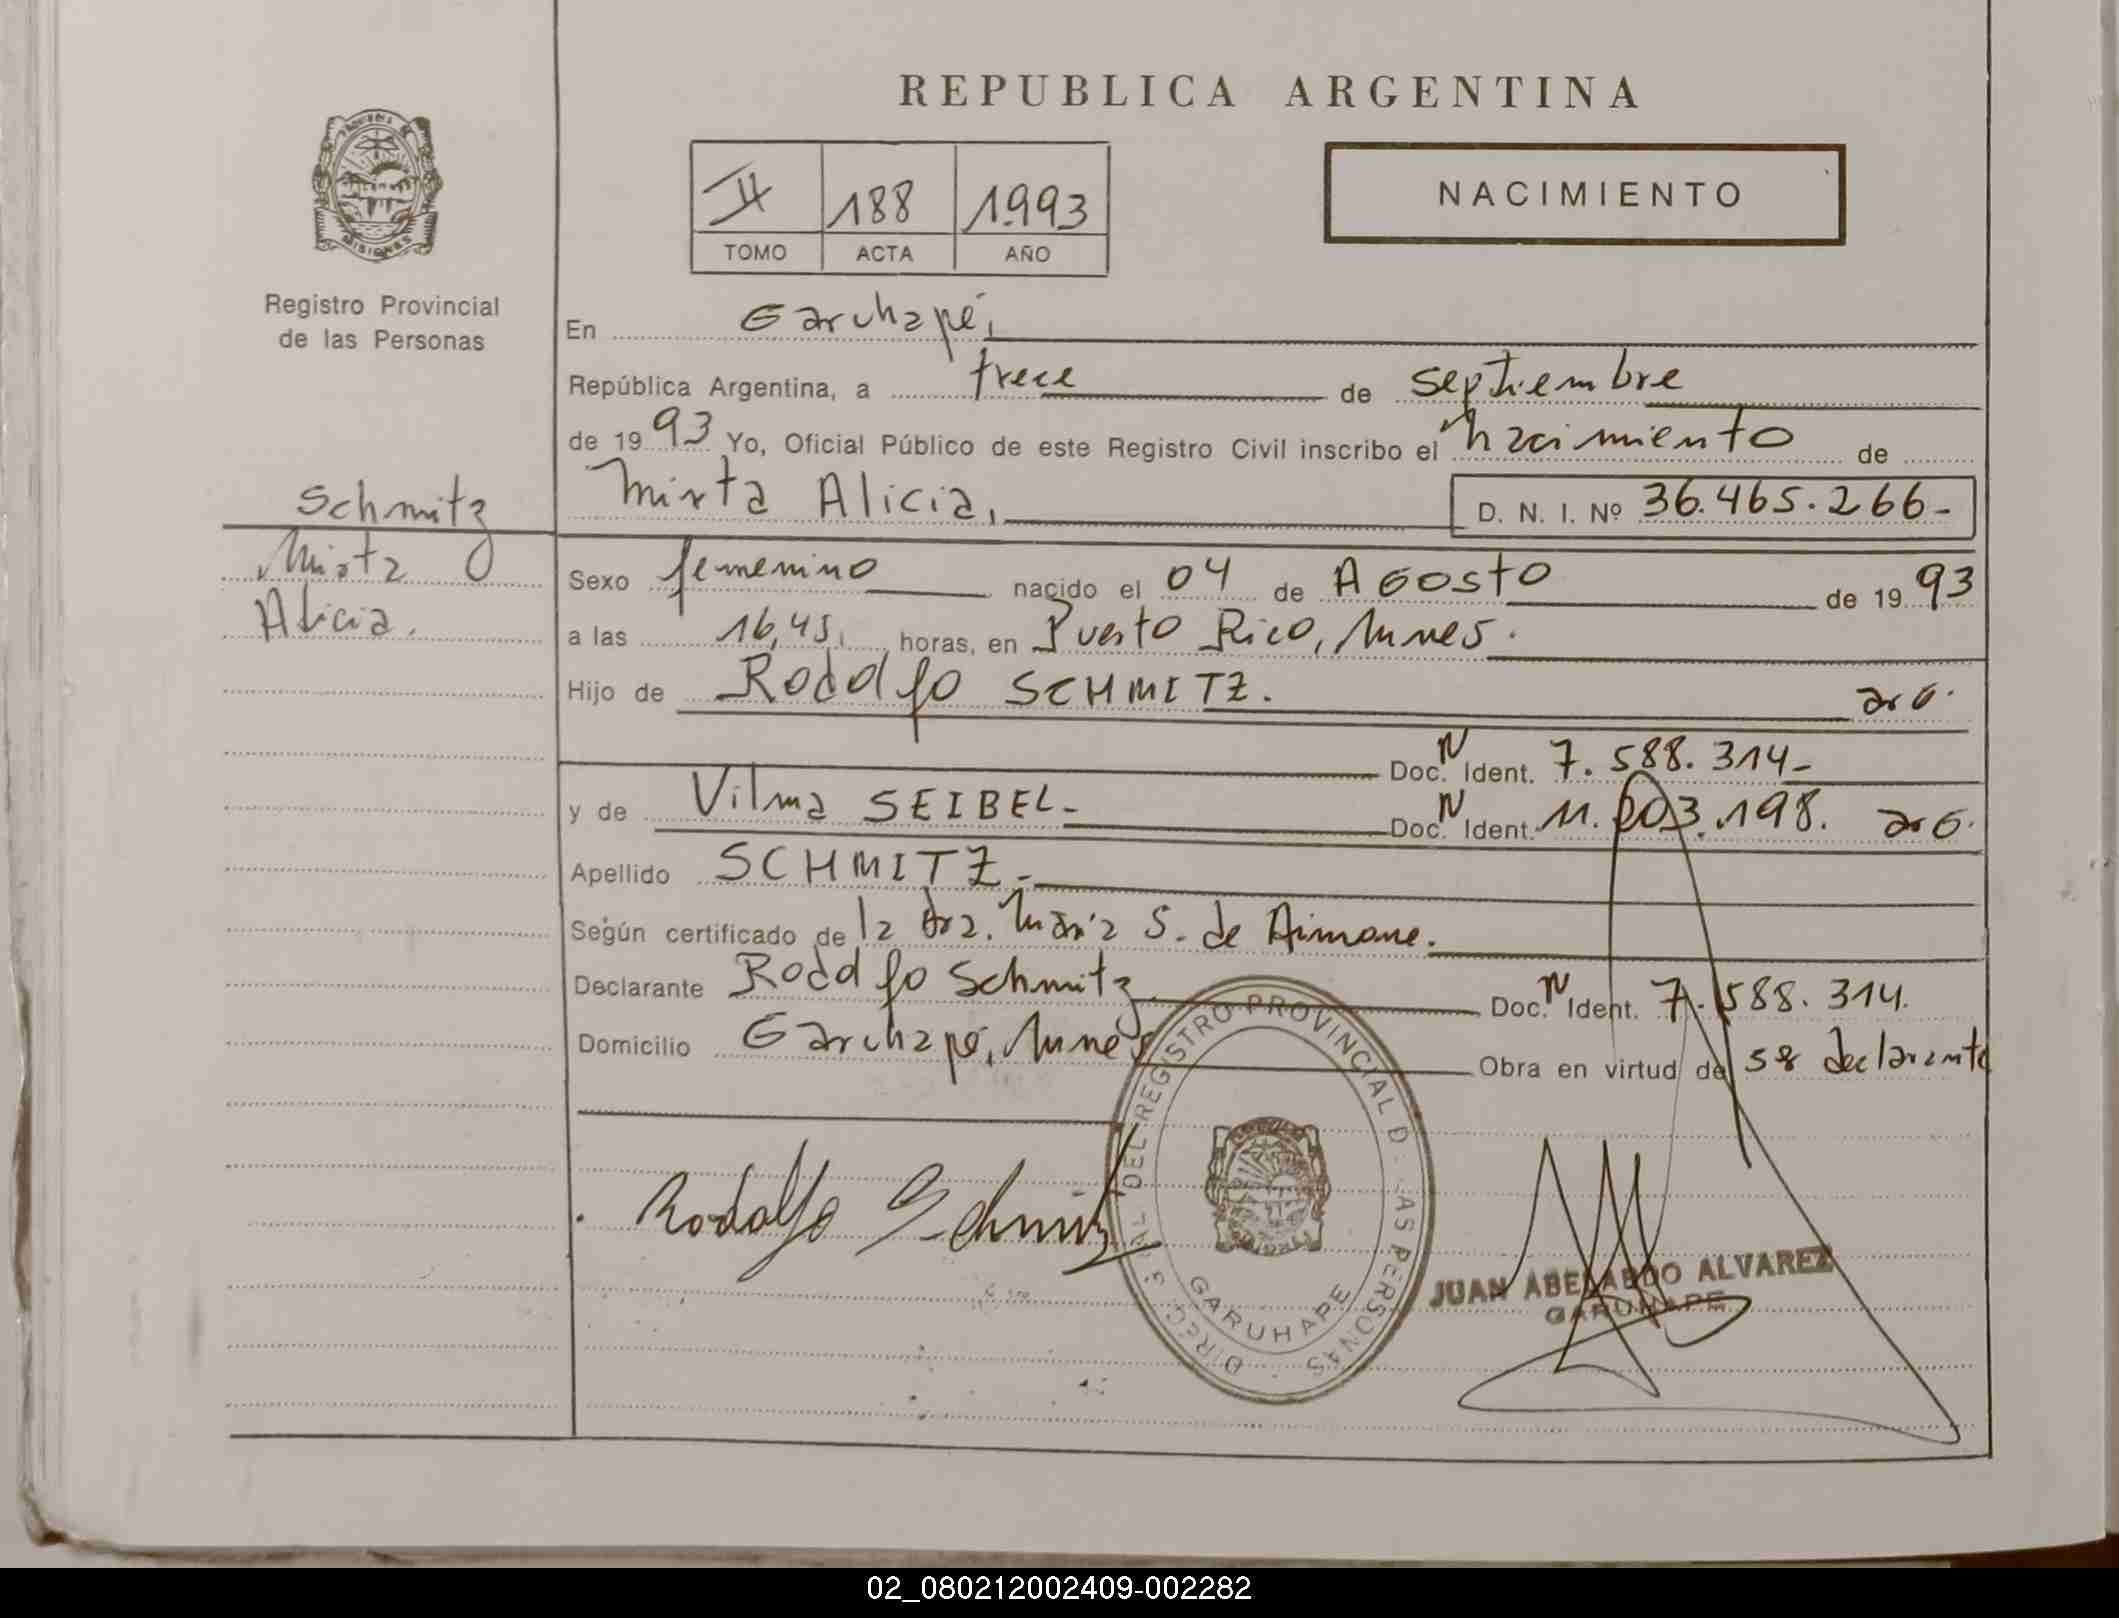 REPUBLICA ARGENTINA
II 188 1993
TOMO ACTA AÑO
NACIMIENTO
MISIONES
Registro Provincial
de las Personas
Schmitz
Mirta
Alicia.
En Garuhapé,
República Argentina, a trece de septiembre
de 1993 Yo, Oficial Público de este Registro Civil inscribo el nacimiento de
Mirta Alicia, D. N. I. Nº 36.465.266-
Sexo femenino nacido el 04 de Agosto de 1993
a las 16,45, horas, en Puerto Rico, Mnes.
Hijo de Rodolfo SCHMITZ. arg.
Doc. N Ident. 7.588.314-
y de Vilma SEIBEL- Doc. N Ident. 11.203.198. arg.
Apellido SCHMITZ-
Según certificado de la Dra. María S. de Aimone.
Declarante Rodolfo Schmitz Doc. N Ident. 7.588.314.
Domicilio Garuhapé, Mnes Obra en virtud de ser declarante
Rodolfo Schmitz
DIREC. GRAL DEL REGISTRO PROVINCIAL D. LAS PERSONAS
GARUHAPE
JUAN ABELARDO ALVAREZ
GARUHAPE
02_080212002409-002282